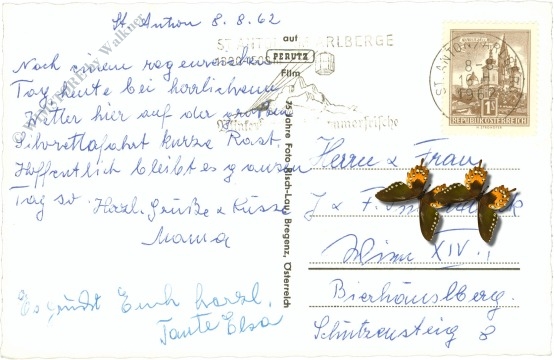 St. Anton 8.8.62
Nach einem regnerischen
Tag heute bei herrlichem
Wetter hier auf der großen
Silvrettafahrt kurze Rast.
Hoffentlich bleibt es ganzen
Tag so. Herzl. Grüße & Küsse
Mama
Es grüßt Euch herzl.
Tante Elsa
auf
PERUTZ
Film
75 Jahre Foto-Risch-Lau, Bregenz, Österreich
ST. ANTON AM ARLBERG
8.
1962
1S
REPUBLIK ÖSTERREICH
Herrn & Frau
J & F.
Wien XIV.
Bierhäuslberg.
Schützensteig 8
by Walkner